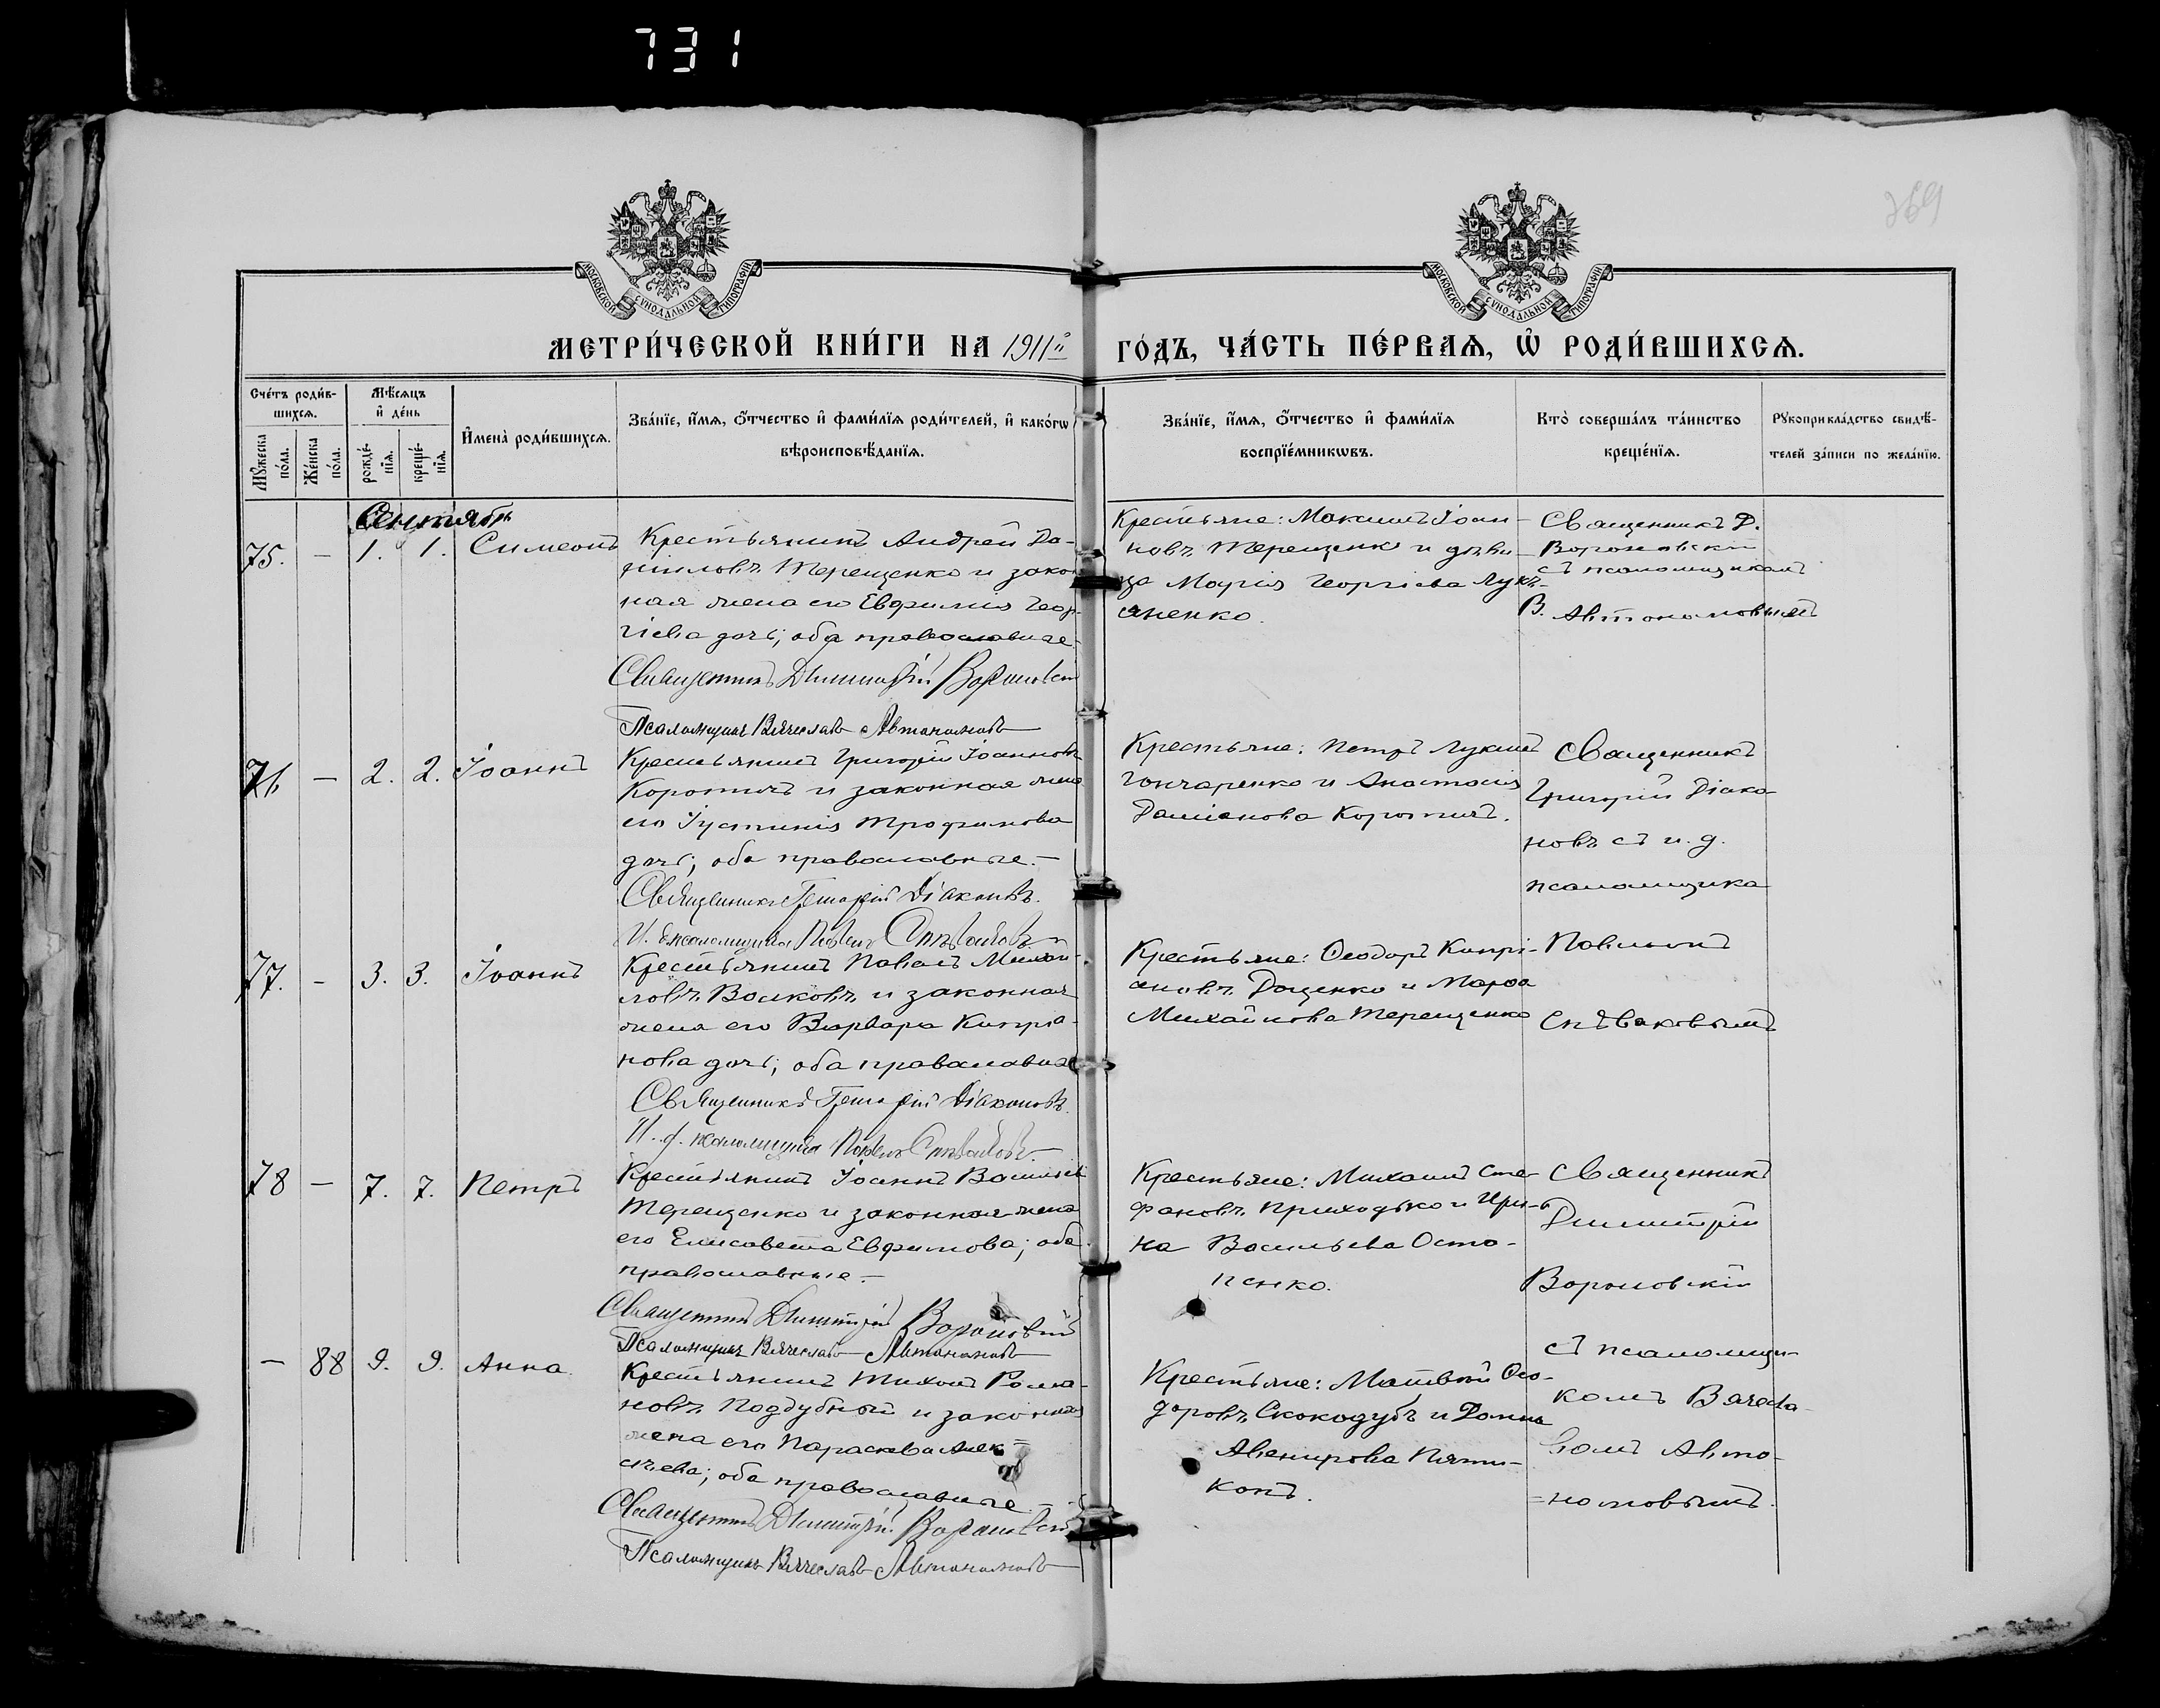 731
269
МОСКОВСКОЙ СѴНОДАЛЬНОЙ ТИПОГРАФІИ
МОСКОВСКОЙ СѴНОДАЛЬНОЙ ТИПОГРАФІИ
МЕТРИ́ЧЕСКОЙ КНИ́ГИ НА 1911й ГО́ДЪ, ЧА́СТЬ ПЕ́РВАѦ, Ѡ҆ РОДИ́ВШИХСѦ.
Сче́тъ роди́в-
шихсѧ.
Мꙋ́жеска по́ла.
Же́нска по́ла.
Мѣ́сѧцъ
и҆ де́нь
рожде́-
нїѧ.
креще́-
нїѧ.
И҆мена̀ роди́вшихсѧ.
Зва́нїе, и҆́мѧ, ѻ҆́тчество и҆ фами́лїѧ роди́телей, и҆ како́гѡ
вѣроисповѣ́данїѧ.
Зва́нїе, и҆́мѧ, ѻ҆́тчество и҆ фами́лїѧ
воспрїе́мникѡвъ.
Кто̀ соверша́лъ та́инство
креще́нїѧ.
Рꙋкоприкла́дство свидѣ́-
телей за́писи по жела́нїю.
Сентябрь
75. - 1. 1. Симеонъ
Крестьянинъ Андрей Да-
нииловъ Терещенко и закон
ная жена его Евфимія Геор-
гіева дочь; оба православные
Священникъ Димитрій Вороновскій
Псаломщикъ Вячеславъ Автономовъ
Крестьяне: Максимъ Іоан-
новъ Терещенко и дѣви-
ца Марія Георгіева Лукь-
яненко.
Священникъ Д.
Вороновскій
съ псаломщикомъ
В. Автономовымъ
76 - 2. 2. Іоаннъ
Крестьянинъ Григорій Іоанновъ
Коротичъ и законная жена
его Іустинія Трофимова
дочь; оба православные.-
Священникъ Григорій Діаконовъ.
И. д. псаломщика Павелъ Спѣваковъ
Крестьяне: Петръ Лукинъ
Гончаренко и Анастасія
Даміанова Коротичъ.
Священникъ
Григорій Діако-
новъ съ и. д.
псаломщика
Павломъ
Спѣваковымъ
77. - 3. 3. Іоаннъ
Крестьянинъ Павелъ Михаи-
ловъ Волковъ и законная
жена его Варвара Кипріа-
нова дочь; оба православные
Священникъ Григорій Діаконовъ.
И. д. псаломщика Павелъ Спѣваковъ.
Крестьяне: Ѳеодоръ Кипрі-
ановъ Даценко и Марѳа
Михайлова Терещенко
78 - 7. 7. Петръ
Крестьянинъ Іоаннъ Васильев
Терещенко и законная жена
его Елисавета Евфимова; оба
православные.-
Священникъ Димитрій Вороновскій
Псаломщикъ Вячеславъ Автономовъ
Крестьяне: Михаилъ Сте-
фановъ Приходько и Ири-
на Васильева Оста-
пенко.
Священникъ
Димитрій
Вороновскій
съ псаломщи-
комъ Вячесла-
вомъ Авто-
=номовымъ.
- 88 9. 9. Анна.
Крестьянинъ Тихонъ Рома-
новъ Поддубный и законная
жена его Параскева Алек-
сѣева; оба православные.-
Священникъ Димитрій Вороновскій
Псаломщикъ Вячеславъ Автономовъ
Крестьяне: Матвѣй Ѳео-
доровъ Скокодубъ и Домна
Авенирова Пяти-
копъ.